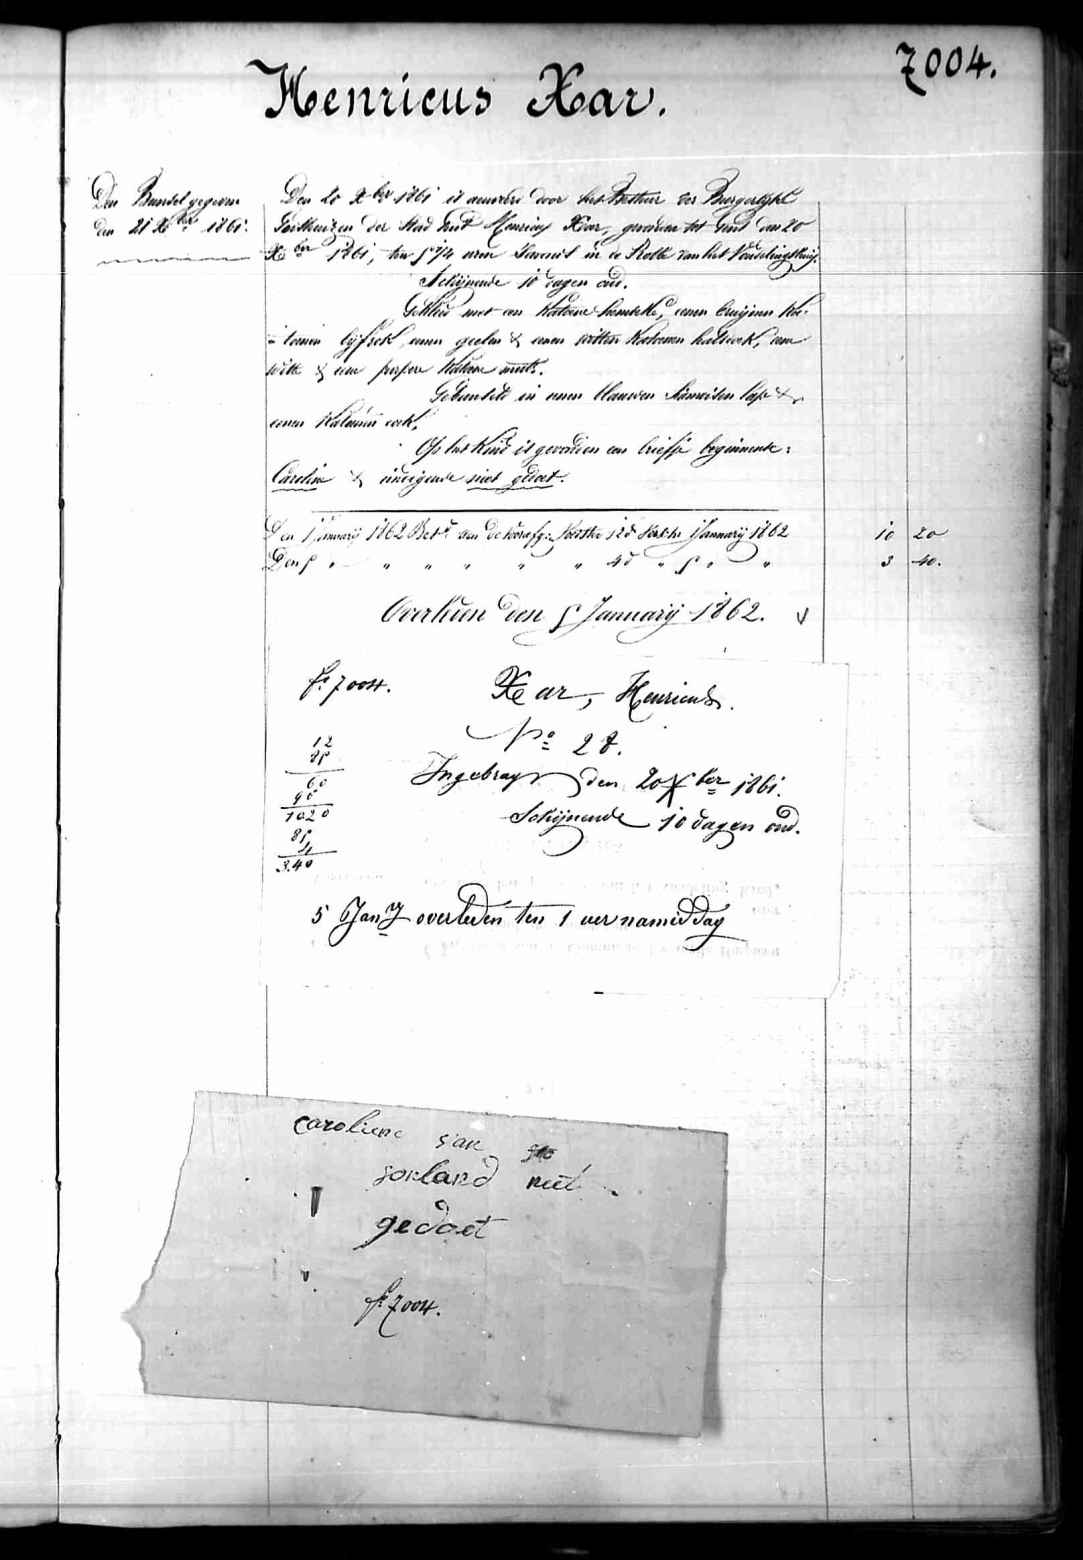 7004.
Henricus Xar.
Den Bundel gegeven
den 21 Xber 1861.
Den 20 Xber 1861 is aenveerd door het Bestuur der Burgerlyke
Godshuizen der Stad Gend Henricus Xar, gevonden tot Gend den 20
Xber 1861, ten 5 3/4 uren 's avonds in de Rolle van het Vondelingshuis.
Schijnende 10 dagen oud.
Gekleed met een katoene hemdeke, eenen bruijnen ka-
toenen lijfrok, eenen geelen & eenen witten katoenen halsdoek, eene
witte & eene purpere katoene muts.
Gebunteld in eenen blauwen saimoisen lap &
eenen katoenen doek.
Op het Kind is gevonden een briefje beginnende:
Caroline & eindigende niet gedoet.
Den 1 January 1862 Bet. aen de 12 d 1 January 1862 10 20
Den 5 " " " " " " 4 d " 5 " " 3 40.
Overleden den 5 January 1862.
fo 7004. Xar, Henricus.
No 28.
12
85
60
96
1020
85
4
3.40
Ingebragt den 20 Xber 1861.
Schijnende 10 dagen oud.
5 Jany overleden ten 1 uer namiddag
caroliene van
gonland niet
gedoet
fo 7004.